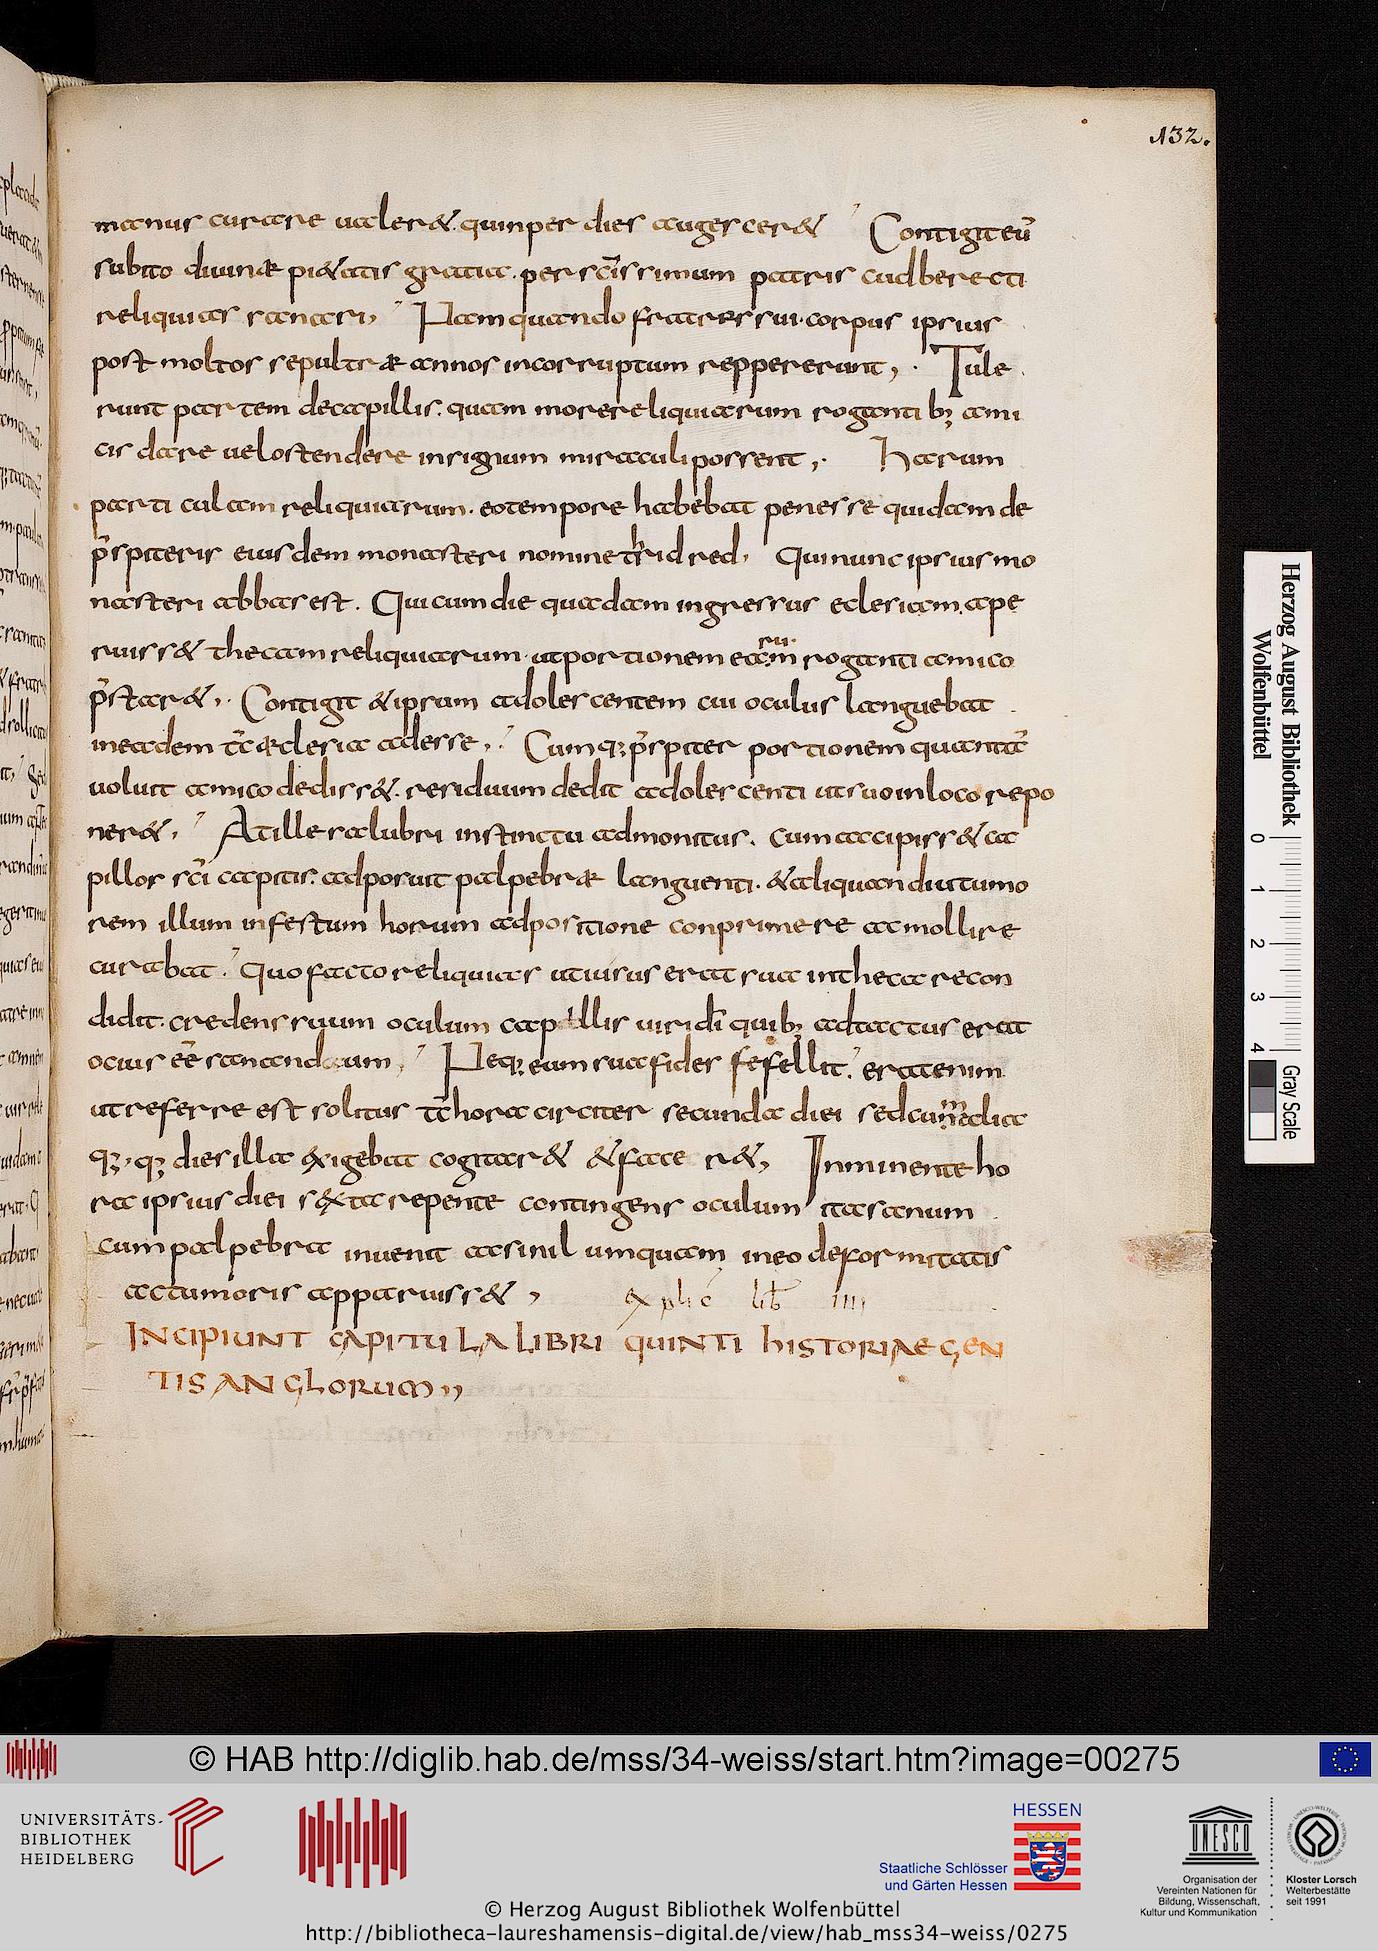 132.
manus curare ualer&. quinper dies augescer& Contigit eū
subito diuinæ pi&atis gratia. per sc̄issimum patris cudberecti
reliquias sanari, Nam quando fratres sui. corpus ipsius
post moltos sepultræ annos incorruptum reppererunt,. Tule
runt partem decapillis. quam more reliquiarum rogantibꝫ ami
cis dare uel ostendere insignum miraculi possent,. Harum
parti culam reliquiarum. eo tempore habebat penes se quidam de
p̄spiteris eiusdem monasteri nomine thridred, Qui nunc ipsius mo
nasteri abbas est. Qui cum die quadam ingressus eclesiam. ape
ruiss& thecam reliquiarum. ut portionem earum roganti amico
p̄star&,. Contigit & ipsum adolescentem cui oculus languebat
in eadem tc̄ æclesia adesse,. Cumqꝫ p̄spiter portionem quantā
uoluit amico dediss&. residuum dedit adolescenti ut suo in loco repo
ner&, At ille salubri instinctu admonitus. cum accipiss& ca
pillos sc̄i capitis. adposuit palpebræ languenti. & aliquandiu tumo
rem illum infestum horum adpositione conprimere ac mollire
curabat. Quo facto reliquias ut iusus erat sua in theca recon
didit. credens suum oculum capillis uiri dī quibꝫ adtactus erat
ocius eē sanandum, Neqꝫ eum sua fides fefellit. erat enim
ut referre est solitus tc̄ hora circiter secunda diei sed cum̄ adia
qꝫ. qꝫ dies illa exigebat cogitar& & face r&, Inminente ho
ra ipsius diei sexta repente contingens oculum ita sanum
cum palpebra inuenit acsi nil umquam in eo deformitatis
ac tumoris apparuiss&, explic̄ lib̄ IIII
INCIPIUNT CAPITULA LIBRI QUINTI HISTORIAE GEN
TIS ANGLORUM
Herzog August Bibliothek
Wolfenbüttel
0 1 2 3 4 Gray Scale
© HAB http://diglib.hab.de/mss/34-weiss/start.htm?image=00275
UNIVERSITÄTS-
BIBLIOTHEK
HEIDELBERG
HESSEN
Staatliche Schlösser
und Gärten Hessen
UNESCO
Organisation der
Vereinten Nationen für
Bildung, Wissenschaft,
Kultur und Kommunikation
Kloster Lorsch
Welterbestätte
seit 1991
© Herzog August Bibliothek Wolfenbüttel
http://bibliotheca-laureshamensis-digital.de/view/hab_mss34-weiss/0275